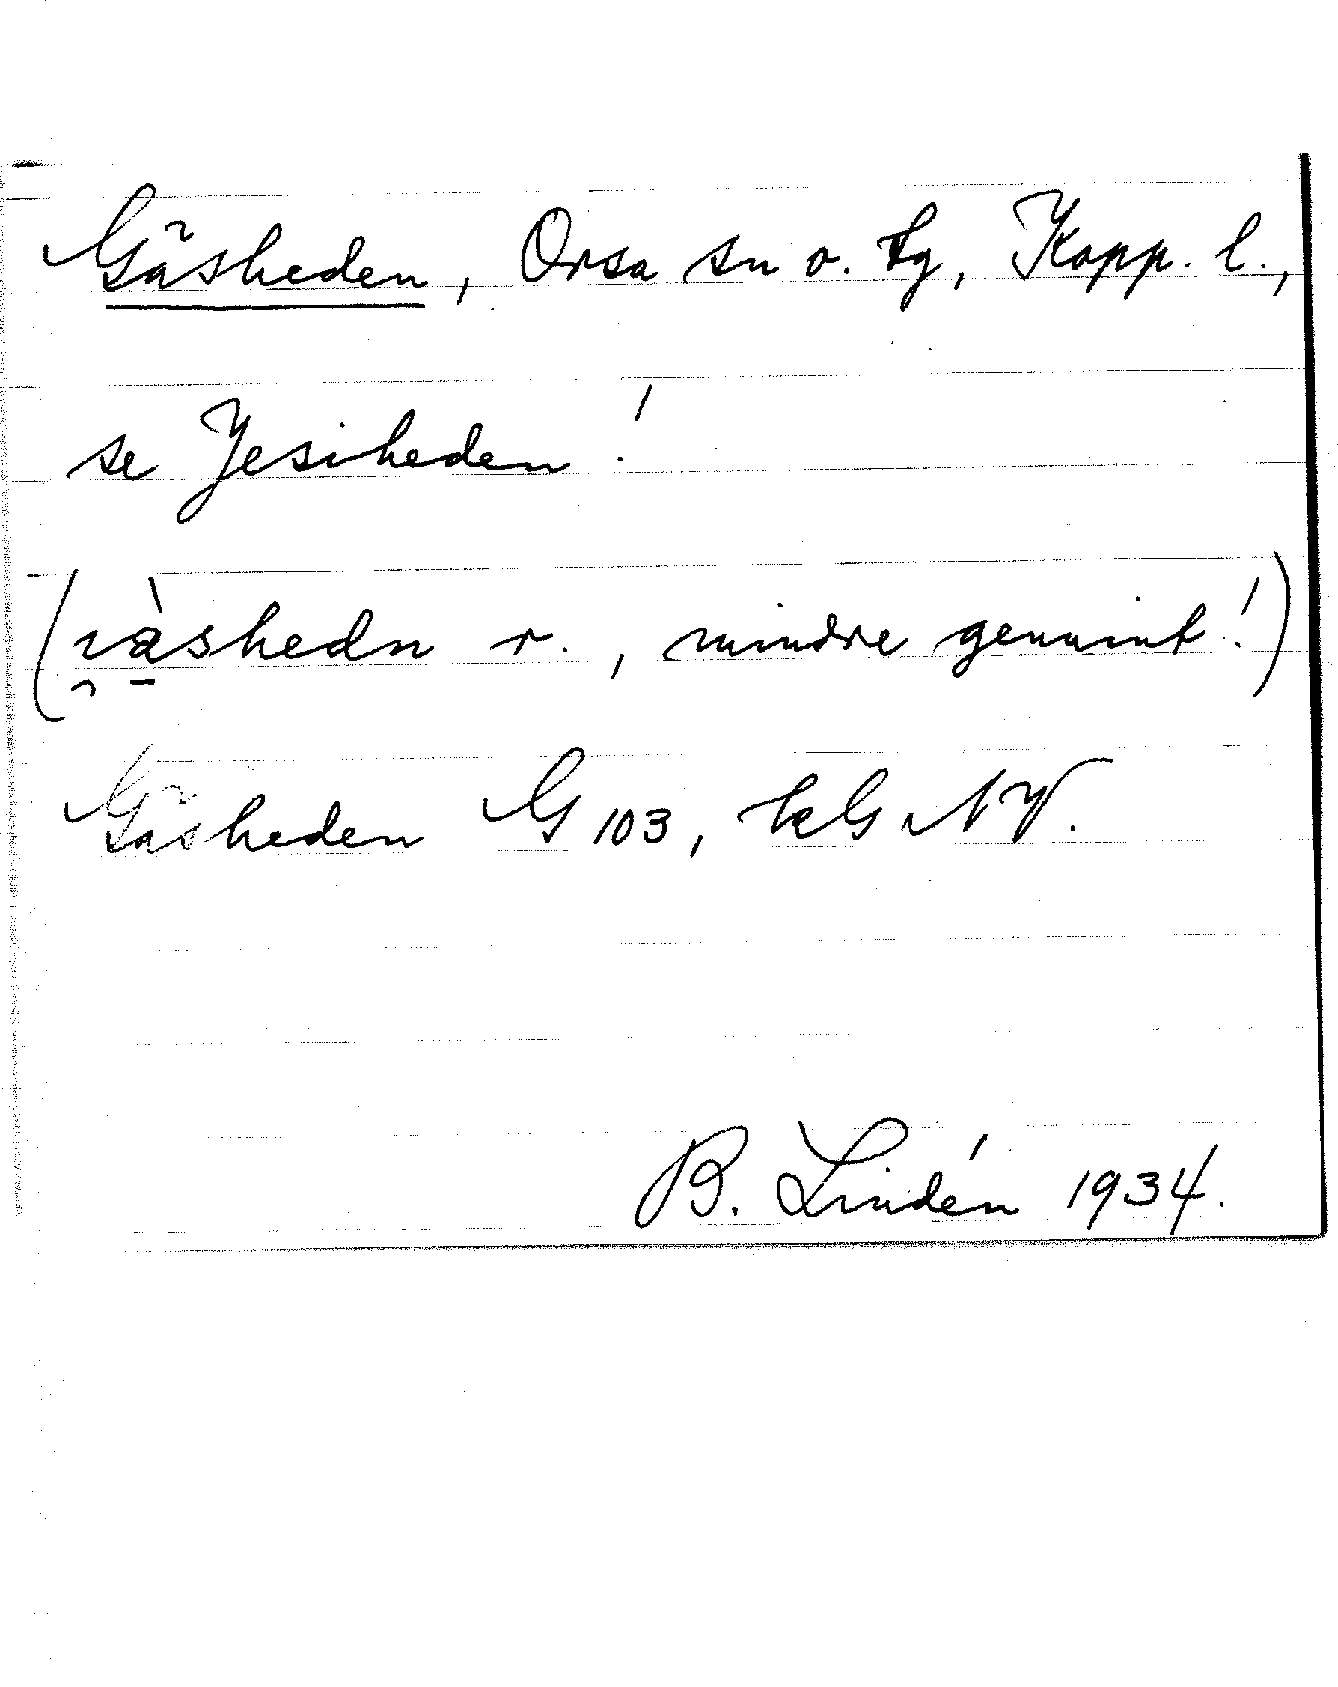 Gäsheden, Orsa sn o. tg, Kopp. l.,
se Jesiheden!
(mindre genuint!)
Gäsheden G 103, kG NV.
B. Lindén 1934.